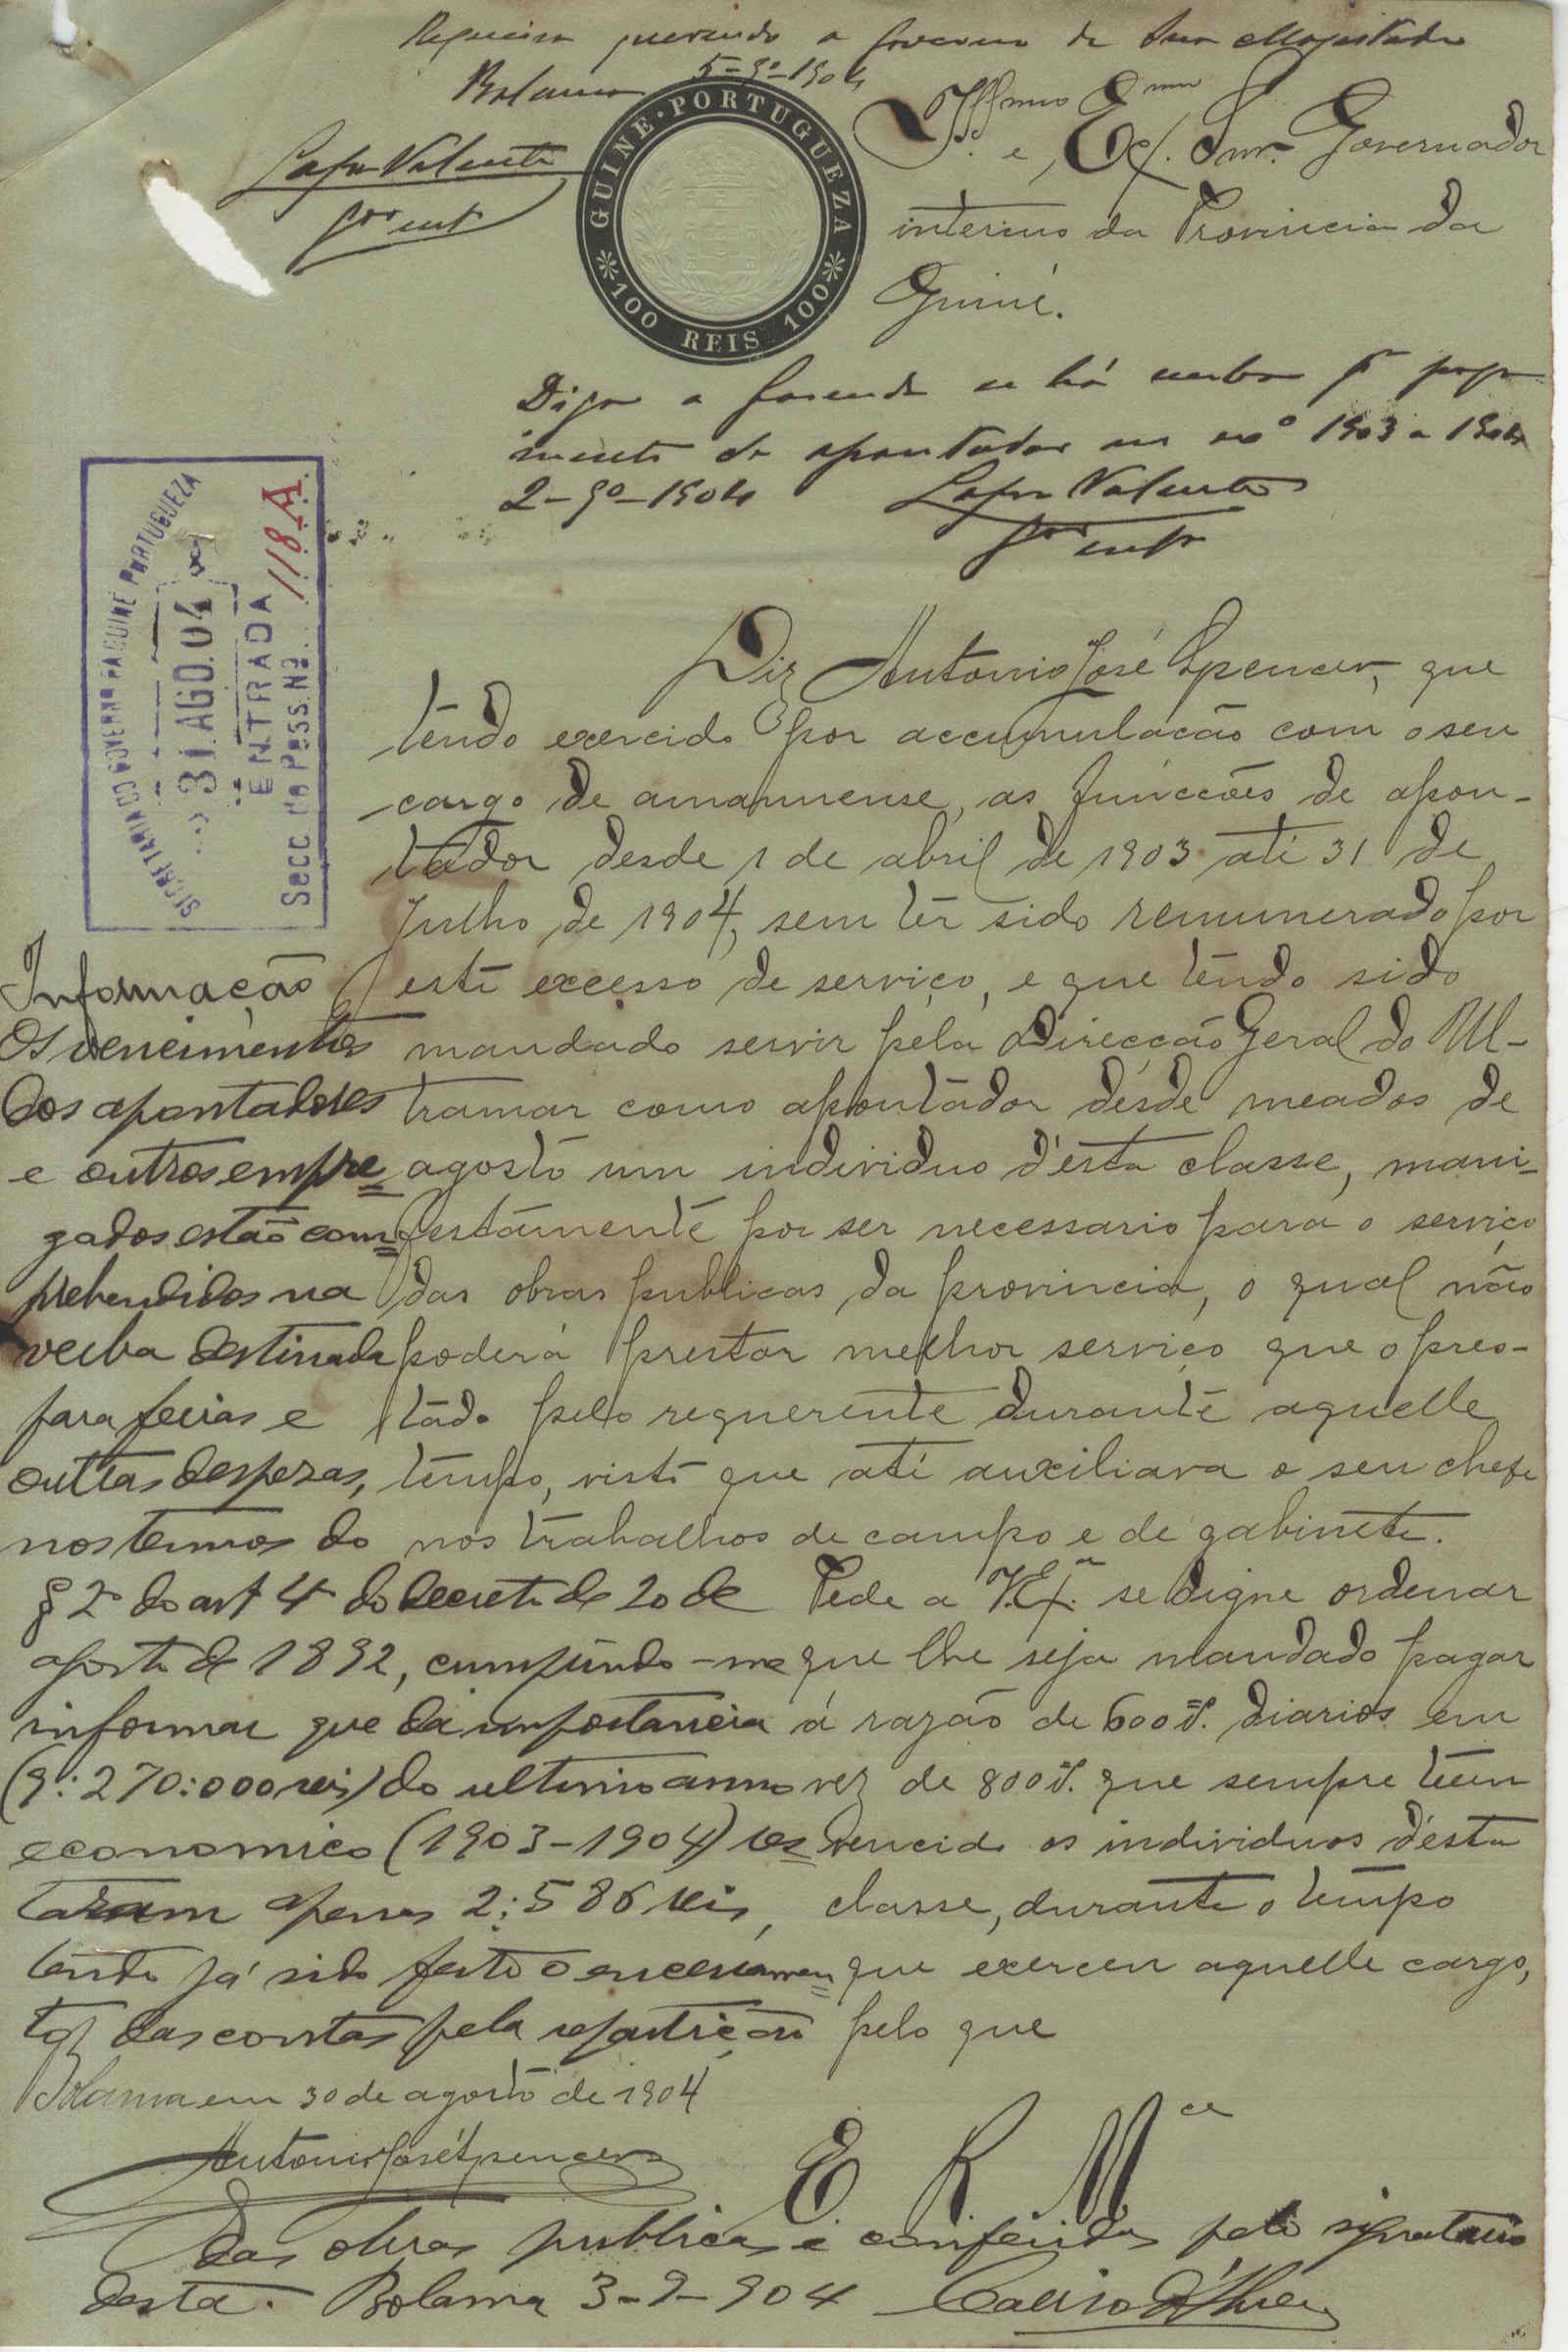 Requeira querendo a governo de Sua Magestade
Bolama 5-9º-1904
Lapa Valente
Gor intº
GUINE·PORTUGUEZA
100 REIS 100
Illmo e Exmo Snr. Governador
interino da Provincia da
Guiné.
Diga a fazenda se há verba pª paga
mento de apontador no anº 1903 a 1904
2-9º-1904 Lapa Valente
Gor intº
SECRETARIA DO GOVERNO DA GUINÉ PORTUGUEZA
31.AGO.04
ENTRADA
Secc. do Pess. Nº 118A
Diz Antonio José Spencer, que
tendo exercido por accumulacão com o seu
cargo de amanuense, as funccões de apon-
tador desde 1 de abril de 1903 até 31 de
Julho de 1904, sem têr sido remunerado por
este excesso de serviço, e que tendo sido
mandado servir pela Direcção Geral do Ul-
tramar como apontador desde meados de
agosto um individuo d'esta classe, mani-
festamente por ser necessario para o serviço
das obras publicas da provincia, o qual não
poderá prestar melhor serviço que o pres-
tado pelo requerente durante aquelle
tempo, visto que até auxiliava o seu chefe
nos trabalhos de campo e de gabinete.
Pede a V.Exª se digne ordenar
que lhe seja mandado pagar
á razão de 600rs. diarios em
vez de 800rs. que sempre teem
vencido os individuos d'esta
classe, durante o tempo
que exerceu aquelle cargo,
pelo que
Bolama em 30 de agosto de 1904
Antonio José Spencer
E. R. Mce
Informação
Os vencimentos
dos apontadores
e outros empre=
gados estão com=
prehendidos na
verba destinada
para ferias e
outras despezas,
nos termos do
§ 2º do art 4º do Decreto de 20 de
agosto de 1892, cumpindo-me
informar que da importancia
(9:270:000 reis) do ultimo anno
economico (1903-1904) res=
taram apenas 2:586 reis,
tendo já sido feito o encerramen=
to das contas pela repartição
das obras publicas e conferida pelo signatario
desta. Bolama 3-9-904